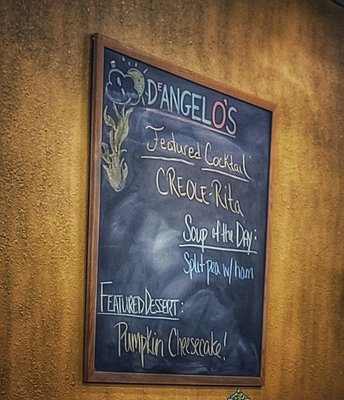 DeANGELO'S
Featured Cocktail
CREOLE-Rita
Soup of the DAY:
Split pea w/ ham
FEATURED DESSERT:
Pumpkin Cheesecake!